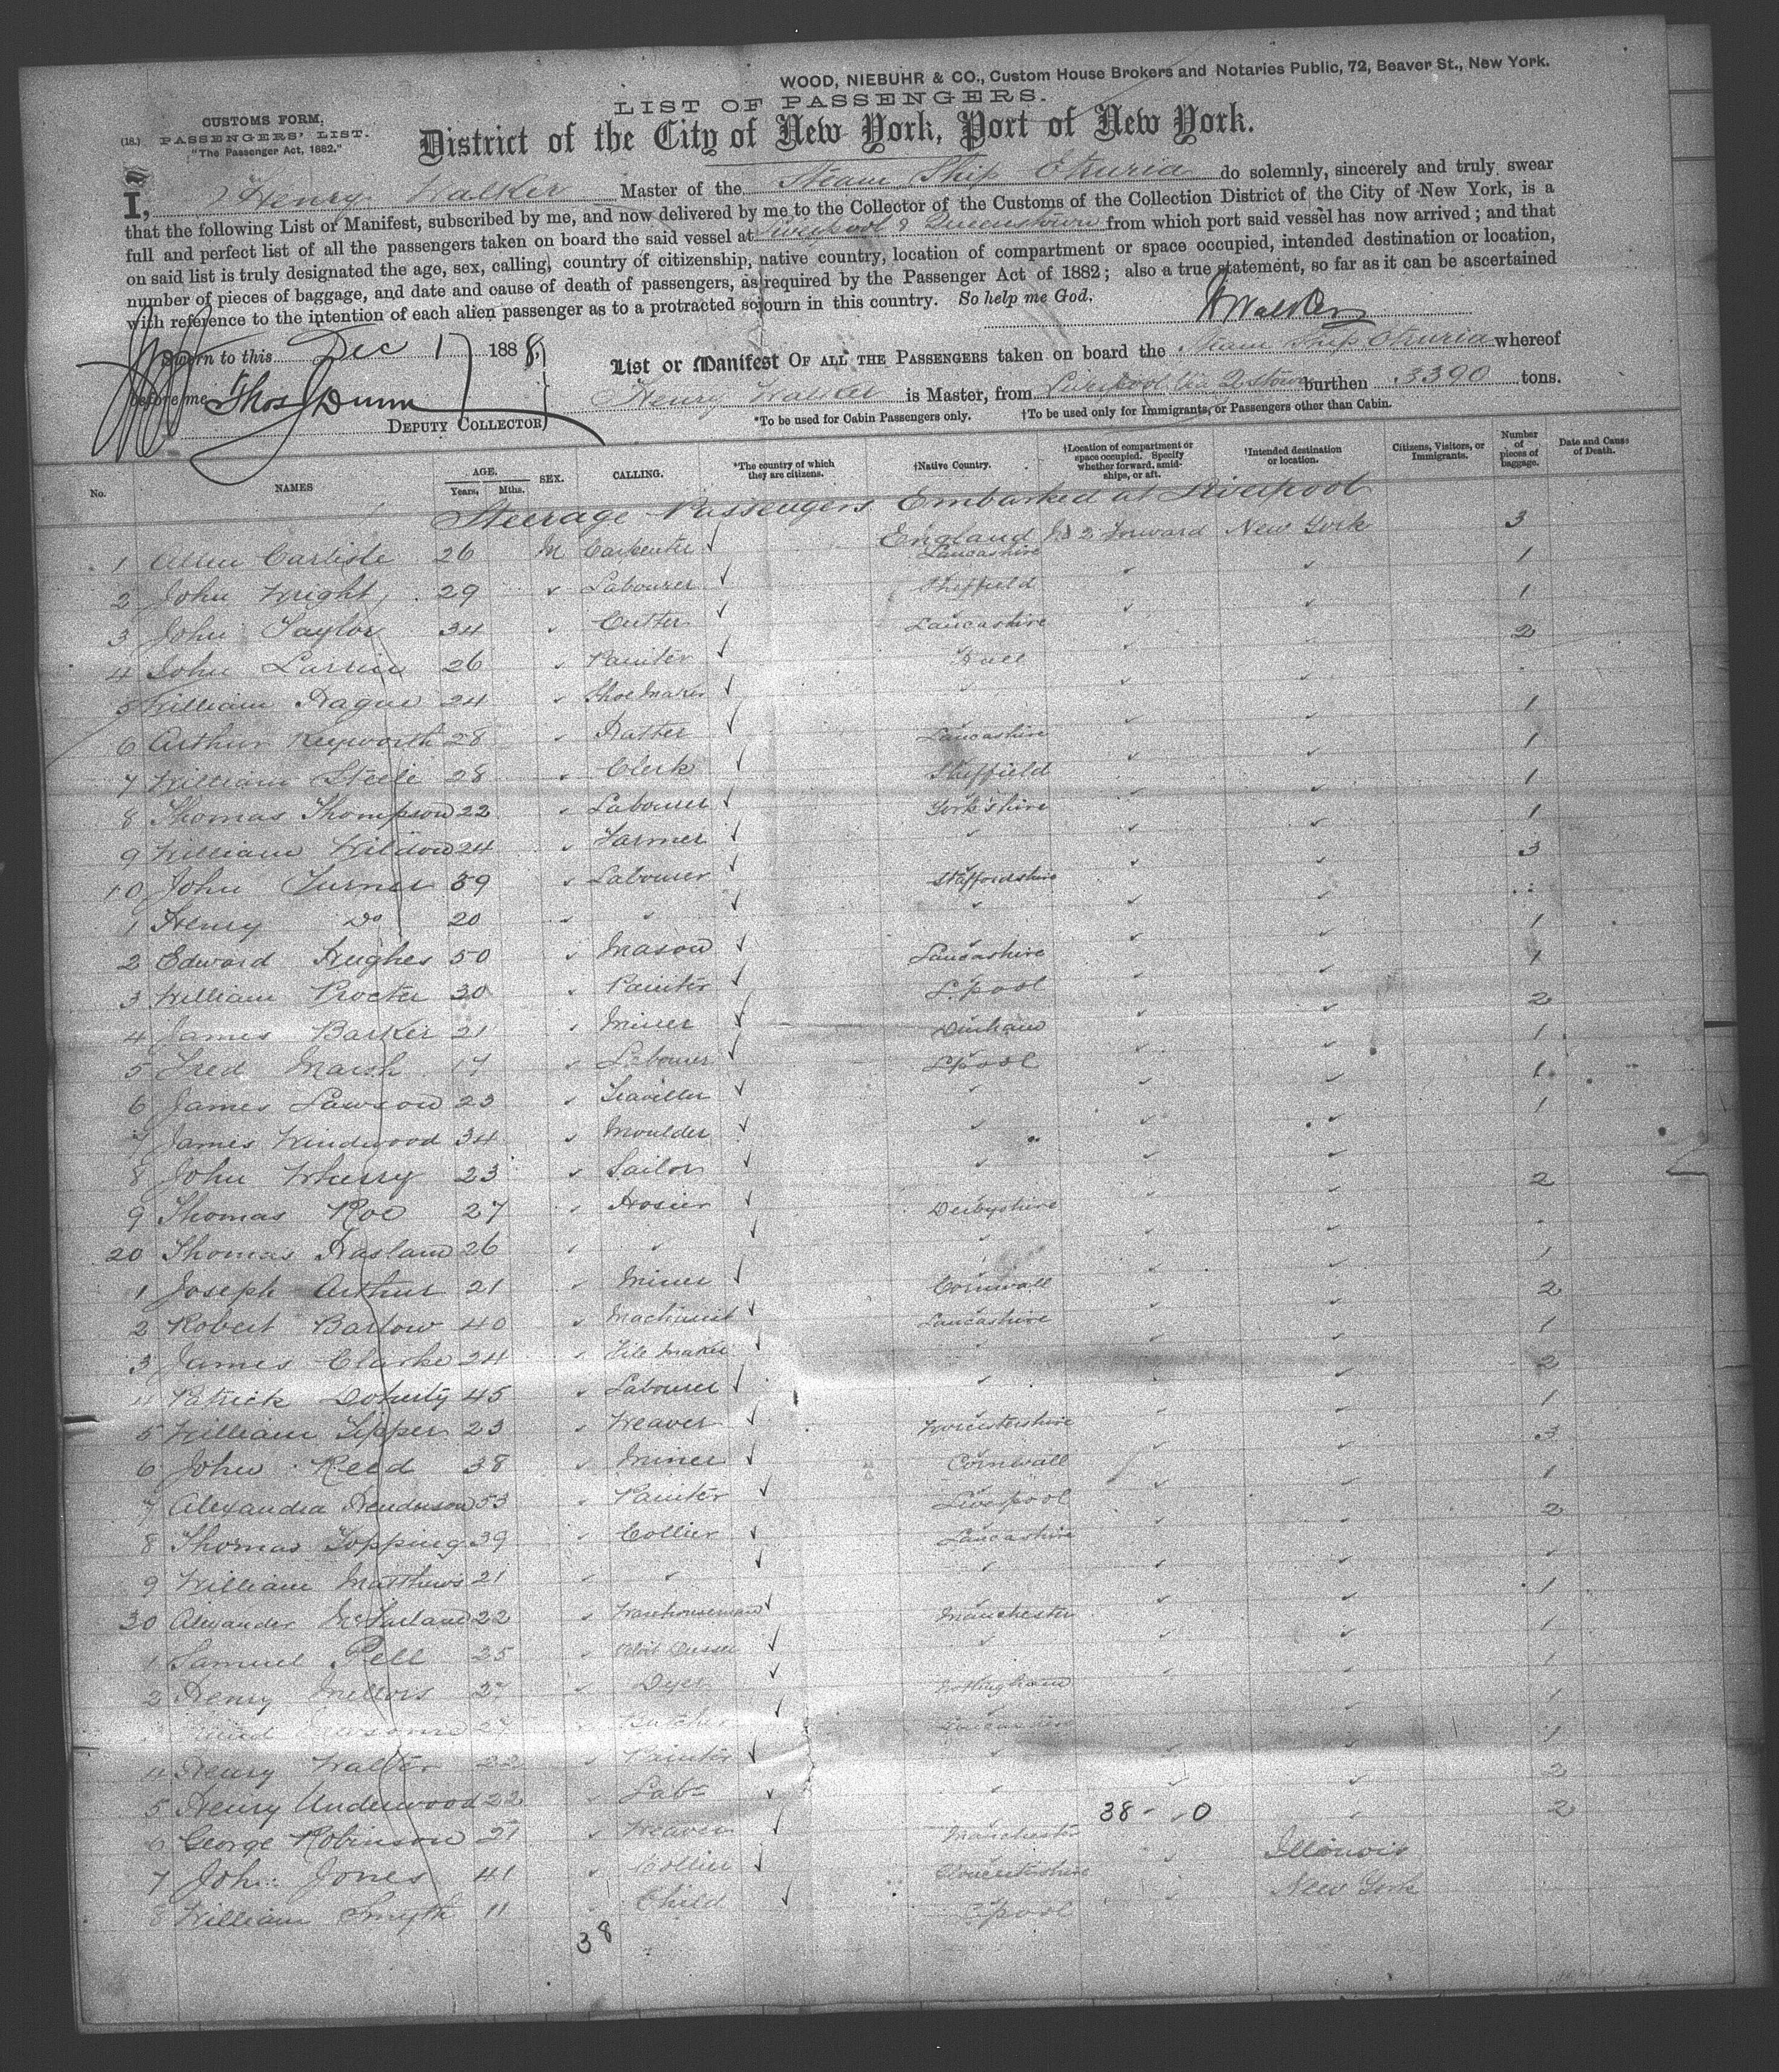 WOOD, NIEBUHR & CO., Custom House Brokers and Notaries Public, 72, Beaver St., New York.
LIST OF PASSENGERS.
CUSTOMS FORM.
(18.) PASSENGERS' LIST.
"The Passenger Act, 1882."
District of the City of New York, Port of New York.
I, Henry Walker Master of the Steam Ship Etruria do solemnly, sincerely and truly swear
that the following List or Manifest, subscribed by me, and now delivered by me to the Collector of the Customs of the Collection District of the City of New York, is a
full and perfect list of all the passengers taken on board the said vessel at Liverpool & Queenstown from which port said vessel has now arrived; and that
on said list is truly designated the age, sex, calling, country of citizenship, native country, location of compartment or space occupied, intended destination or location,
number of pieces of baggage, and date and cause of death of passengers, as required by the Passenger Act of 1882; also a true statement, so far as it can be ascertained
with reference to the intention of each alien passenger as to a protracted sojourn in this country. So help me God.
H Walker
Sworn to this Dec 17 1888,
before me Thos J Dunn
DEPUTY COLLECTOR
List or Manifest OF ALL THE PASSENGERS taken on board the Steam Ship Etruria whereof
Henry Walker is Master, from Liverpool via Qstown burthen 3390 tons.
*To be used for Cabin Passengers only. †To be used only for Immigrants, or Passengers other than Cabin.
No. NAMES AGE. Years, Mths. SEX. CALLING. *The country of which they are citizens. †Native Country. †Location of compartment or space occupied. Specify whether forward, amidships, or aft. †Intended destination or location. Citizens, Visitors, or Immigrants. Number of pieces of baggage. Date and Cause of Death.
Steerage Passengers Embarked at Liverpool
England 2 Forward New York 3
1 Allen Carlisle 26 M Carpenter Lancashire 1
2 John Wright 29 Labourer Sheffield 1
3 John Taylor 34 Cutter Lancashire 2
4 John 26 Painter Hull
5 William Hague 24 Shoe Maker 1
6 Arthur Keyworth 28 Hatter Lancashire 1
7 William Steele 28 Clerk Sheffield 1
8 Thomas Thompson 22 Labourer Yorkshire 1
9 William 24 Farmer 3
10 John Turner 59 Labourer Staffordshire
1 Henry Do 20 1
2 Edward Hughes 50 Mason Lancashire 1
3 William Procter 30 Painter L'pool 2
4 James Barker 21 Miner Durham 1
5 Fred Marsh 17 Labourer L'pool 1
6 James Lawson 23 Traveller 1
7 James Windwood 34 Moulder
8 John Wherry 23 Sailor 2
9 Thomas Roe 27 Hosier Derbyshire
20 Thomas Hasland 26 1
1 Joseph Arthur 21 Miner Cornwall 2
2 Robert Barlow 40 Machinist Lancashire 1
3 James Clarke 24 File Maker 2
4 Patrick Doherty 45 Labourer 1
5 William Tipper 23 Weaver Worcestershire 3
6 John Reed 38 Miner Cornwall 1
7 Alexander Henderson 53 Painter Liverpool 2
8 Thomas Topping 39 Collier Lancashire
9 William Matthews 21 1
30 Alexander McFarland 22 Warehouseman Manchester 1
1 Samuel Pell 25 1
2 Henry Mellors 27 Dyer Nottingham 1
Newsome 27 Butcher Lancashire 1
4 Henry Walter 22 Painter 2
5 Henry Underwood 22 Labr 38 - 0 2
6 George Robinson 21 Weaver Manchester
7 John Jones 41 Collier Gloucestershire Illinois
8 William Smyth 11 Child L'pool New York
38